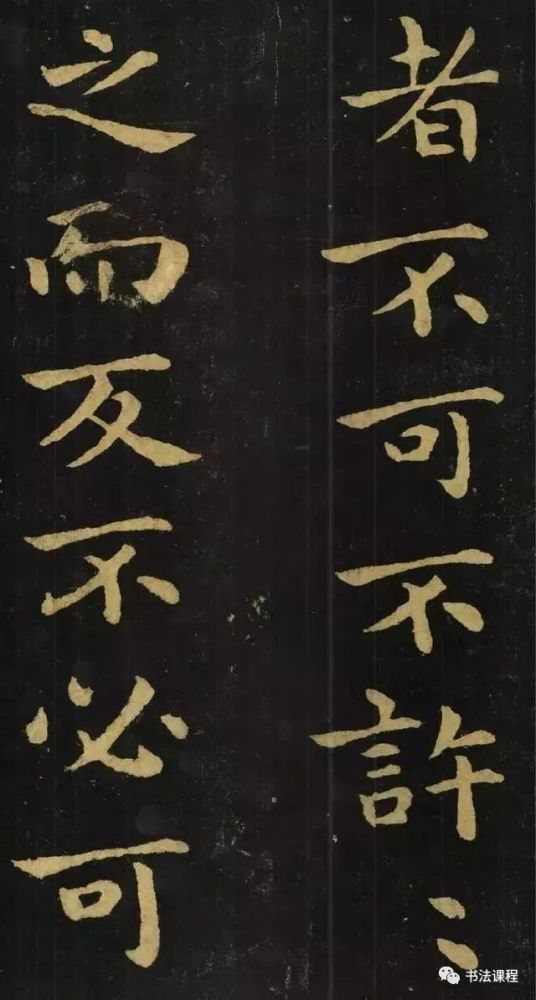 者不可不許〻
之而反不必可
书法课程